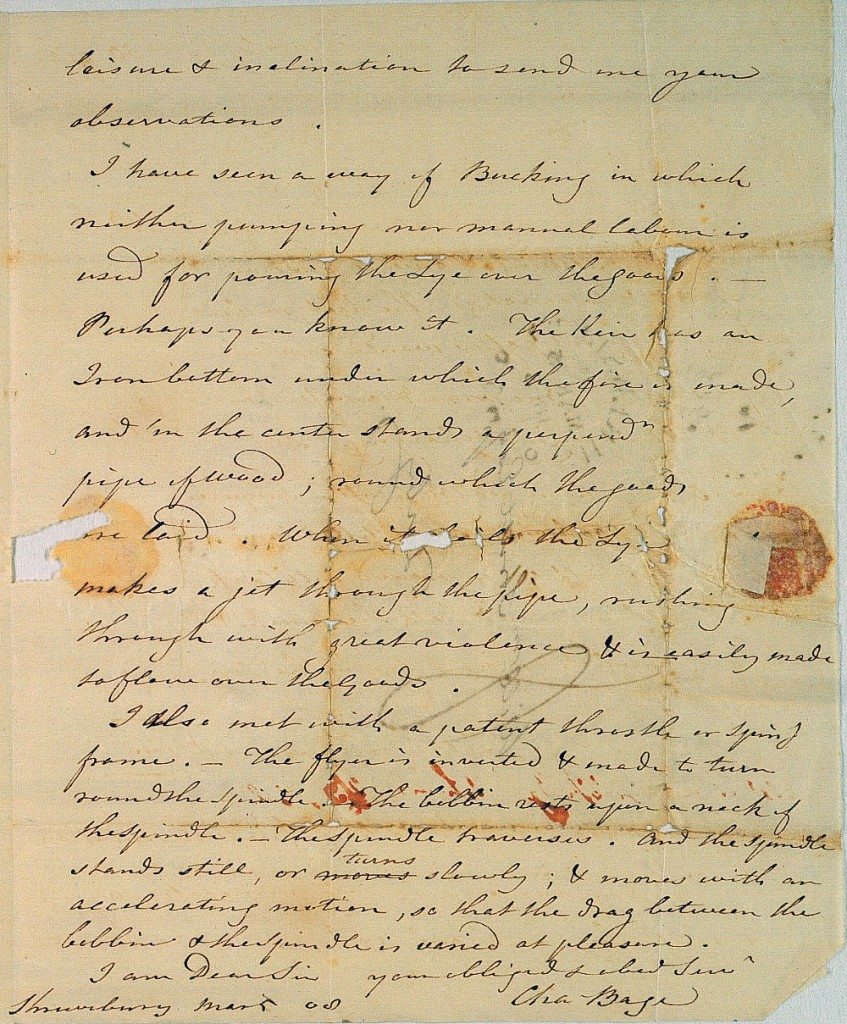 leisure & inclination to send me your
observations.
I have seen a way of Bucking in which
neither pumping nor manual labour is
used for pouring the Lye over the goods. —
Perhaps you know it. The Keir has an
Iron bottom under which the fire is made,
and in the center stands a perpendr
pipe of wood; round which the goods
are laid. When it boils the Lye
makes a jet through the pipe, rushing
through with great violence & is easily made
to flow over the goods.
I also met with a patent throstle or Sping
frame. — The flyer is inverted & made to turn
round the spindle — The bobbin rests upon a neck of
the spindle. — The spindle traverses. And the spindle
stands still, or moves turns slowly; & moves with an
accelerating motion, so that the drag between the
bobbin & the spindle is varied at pleasure.
I am Dear Sir your obliged & obed Servt
Shrewsbury Mar 5 08 Cha Bage